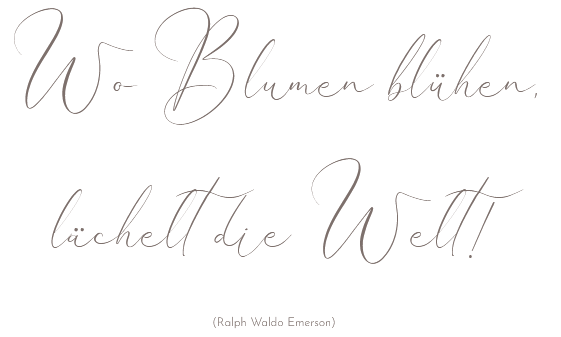 Wo Blumen blühen,
lächelt die Welt!
(Ralph Waldo Emerson)